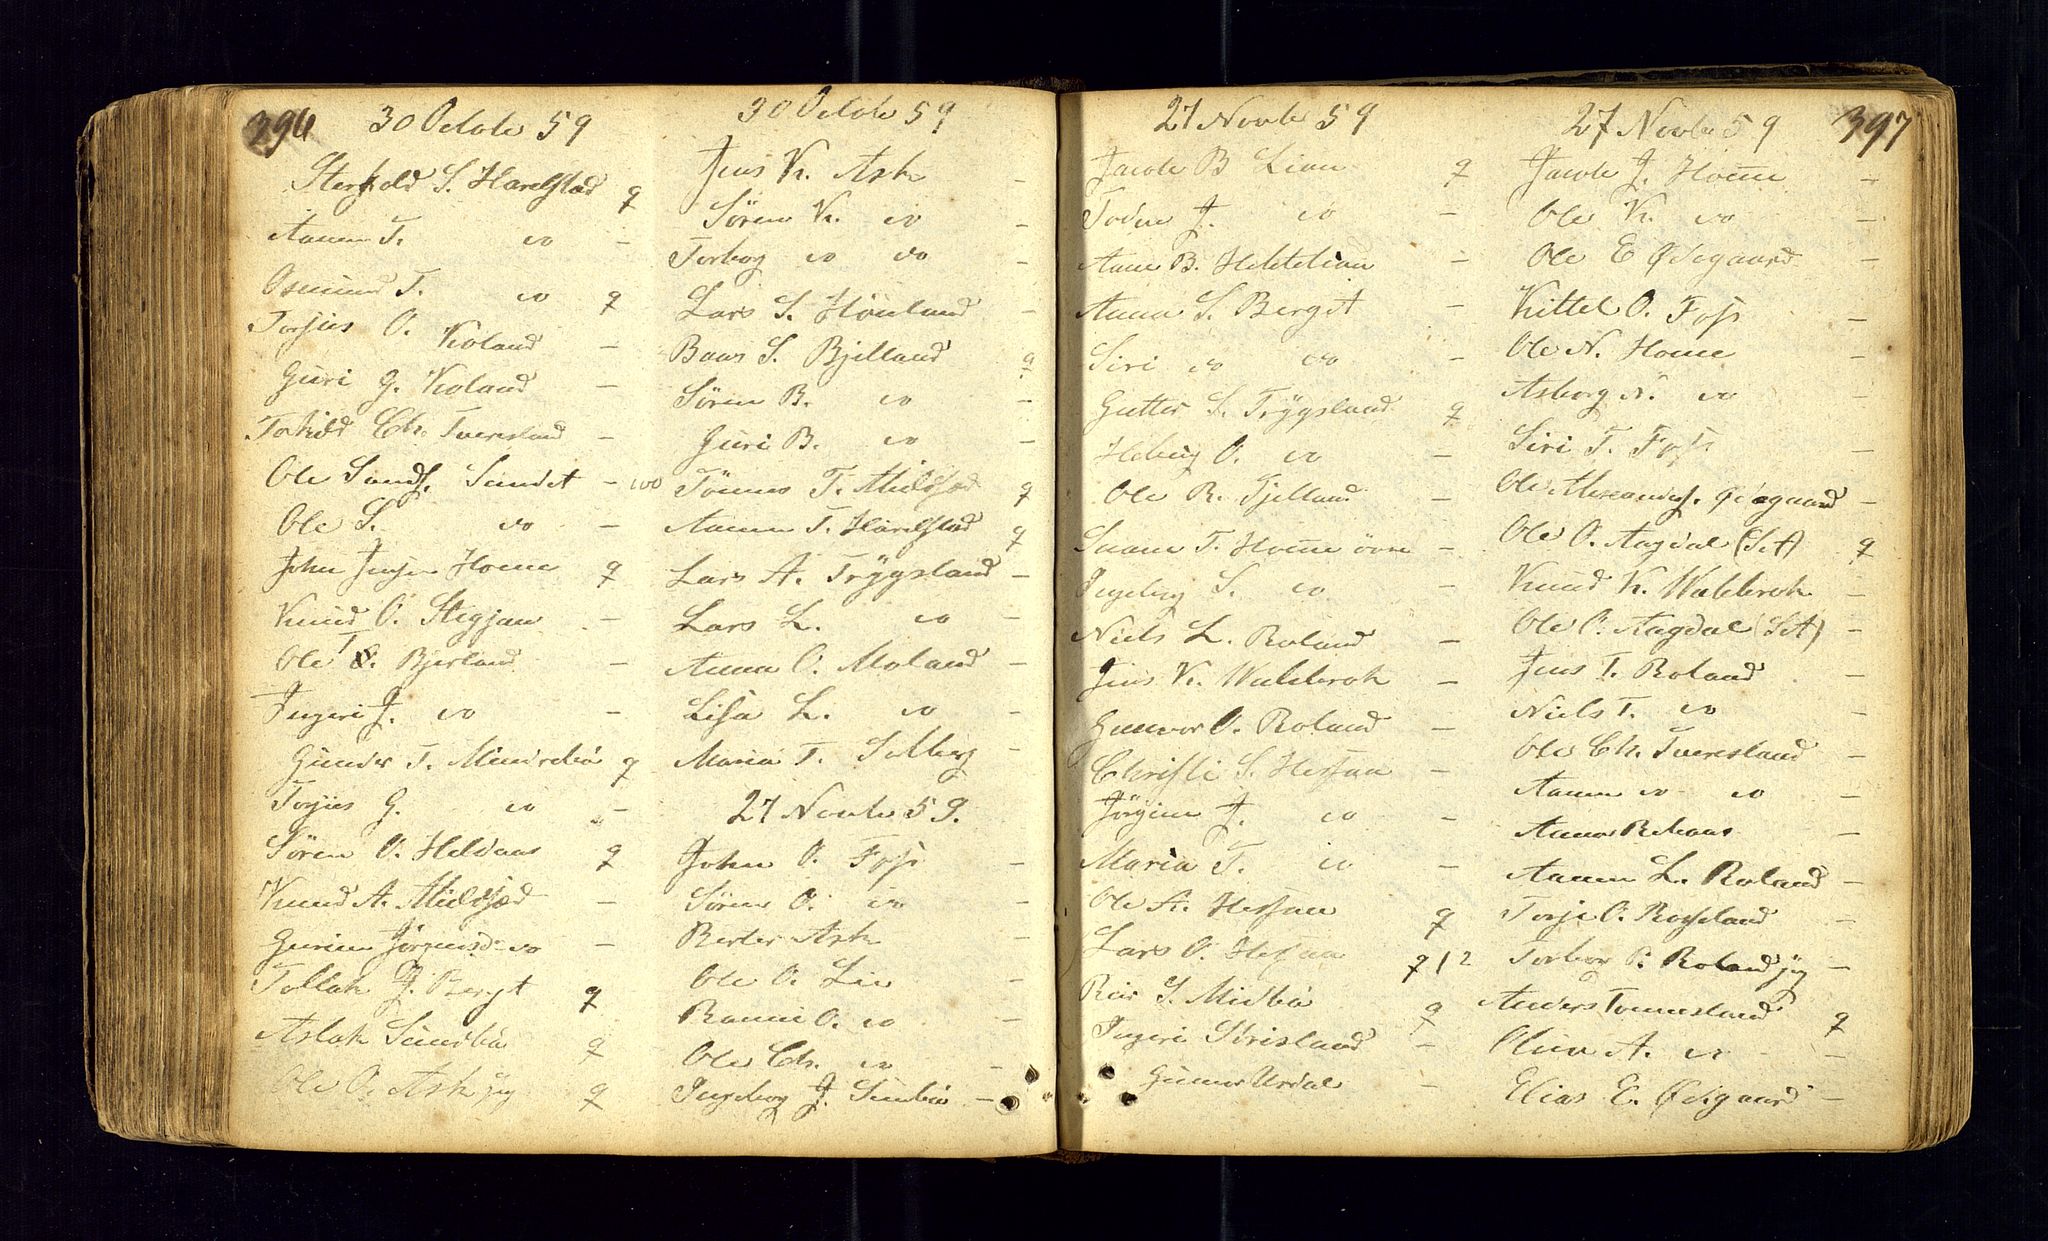 396
30 Octobr 59
Sterkold S. Harelstad q
Aanen T. do -
Osmund T. do q
Torjus O. Koland -
Guri G. Koland -
Torkild Chr. Tveresland -
Ole Sunds. Sundet -
Ole S. do -
John Jensen Home q
Knud O. Stegjan -
Ole T. Bjerland -
Ingeri J. do -
Gunder T. Mindrebø q
Torjus G. do -
Sören O. Heldaas q
Knud A. Midsjød -
Gurine Jörgensd do -
Tollak J. Bergit q
Aslak Sundbø q
Ole O. Ask jg q
30 Octobr 59
Jens K. Ask -
Søren K. do -
Torbog do do -
Lars S. Houland -
Baas S. Bjelland q
Søren B. do -
Guri B. do -
Tönnes T. Midsjød q
Aanen T. Harelstad q
Lars A. Trygsland -
Lars L. do -
Anna O. Moland -
Lisa L. do -
Maria T. Solberg -
27 Novbr 59.
John O. Foss -
Søren O. do -
Berte Ask -
Ole O. Lie -
Ramie O. do -
Ole Chr. do -
Ingeborg J. Sundbø -
27 Novbr 59
Jacob B Lian q
Joren J. do -
Anne B. Heddelian -
Anna S. Bergit -
Siri do do -
Gutter S. Trygsland q
Helvig O. do -
Ole R. Fjelland -
Sname T. Home övre -
Ingeborg S. do -
Niels L. Roland -
Jens K. Waldbrok -
Gunvor O. Roland -
Christi S. Hessaa -
Jörgine J. do -
Maria T. do -
Ole K. Hessaa q
Lars O. Hessaa q 12
Reier S. Midbø q
Ingeri Sörisland -
Gunvor Urdal -
27 Novbr 59
397
Jacob J. Home -
Ole K. do -
Ole E Ødegaard -
Kittel O. Foss -
Ole N. Home -
Asborg N. do -
Siri T. Foss -
Ole Alexanders. Ødegaard -
Ole O. Aagdal (S.A) q
Knud K. Waldbrok -
Ole O. Aagdal (S.A) -
Jens T. Roland -
Niels T. do -
Ole Chr. Tveresland -
Aanen do do -
Anna Rekaas -
Aanen L. Roland -
Torje O. Rosseland -
Torbor O. Roland jg -
Anders Tonnesland q
Oline A. do -
Elias E. Ødegaard -